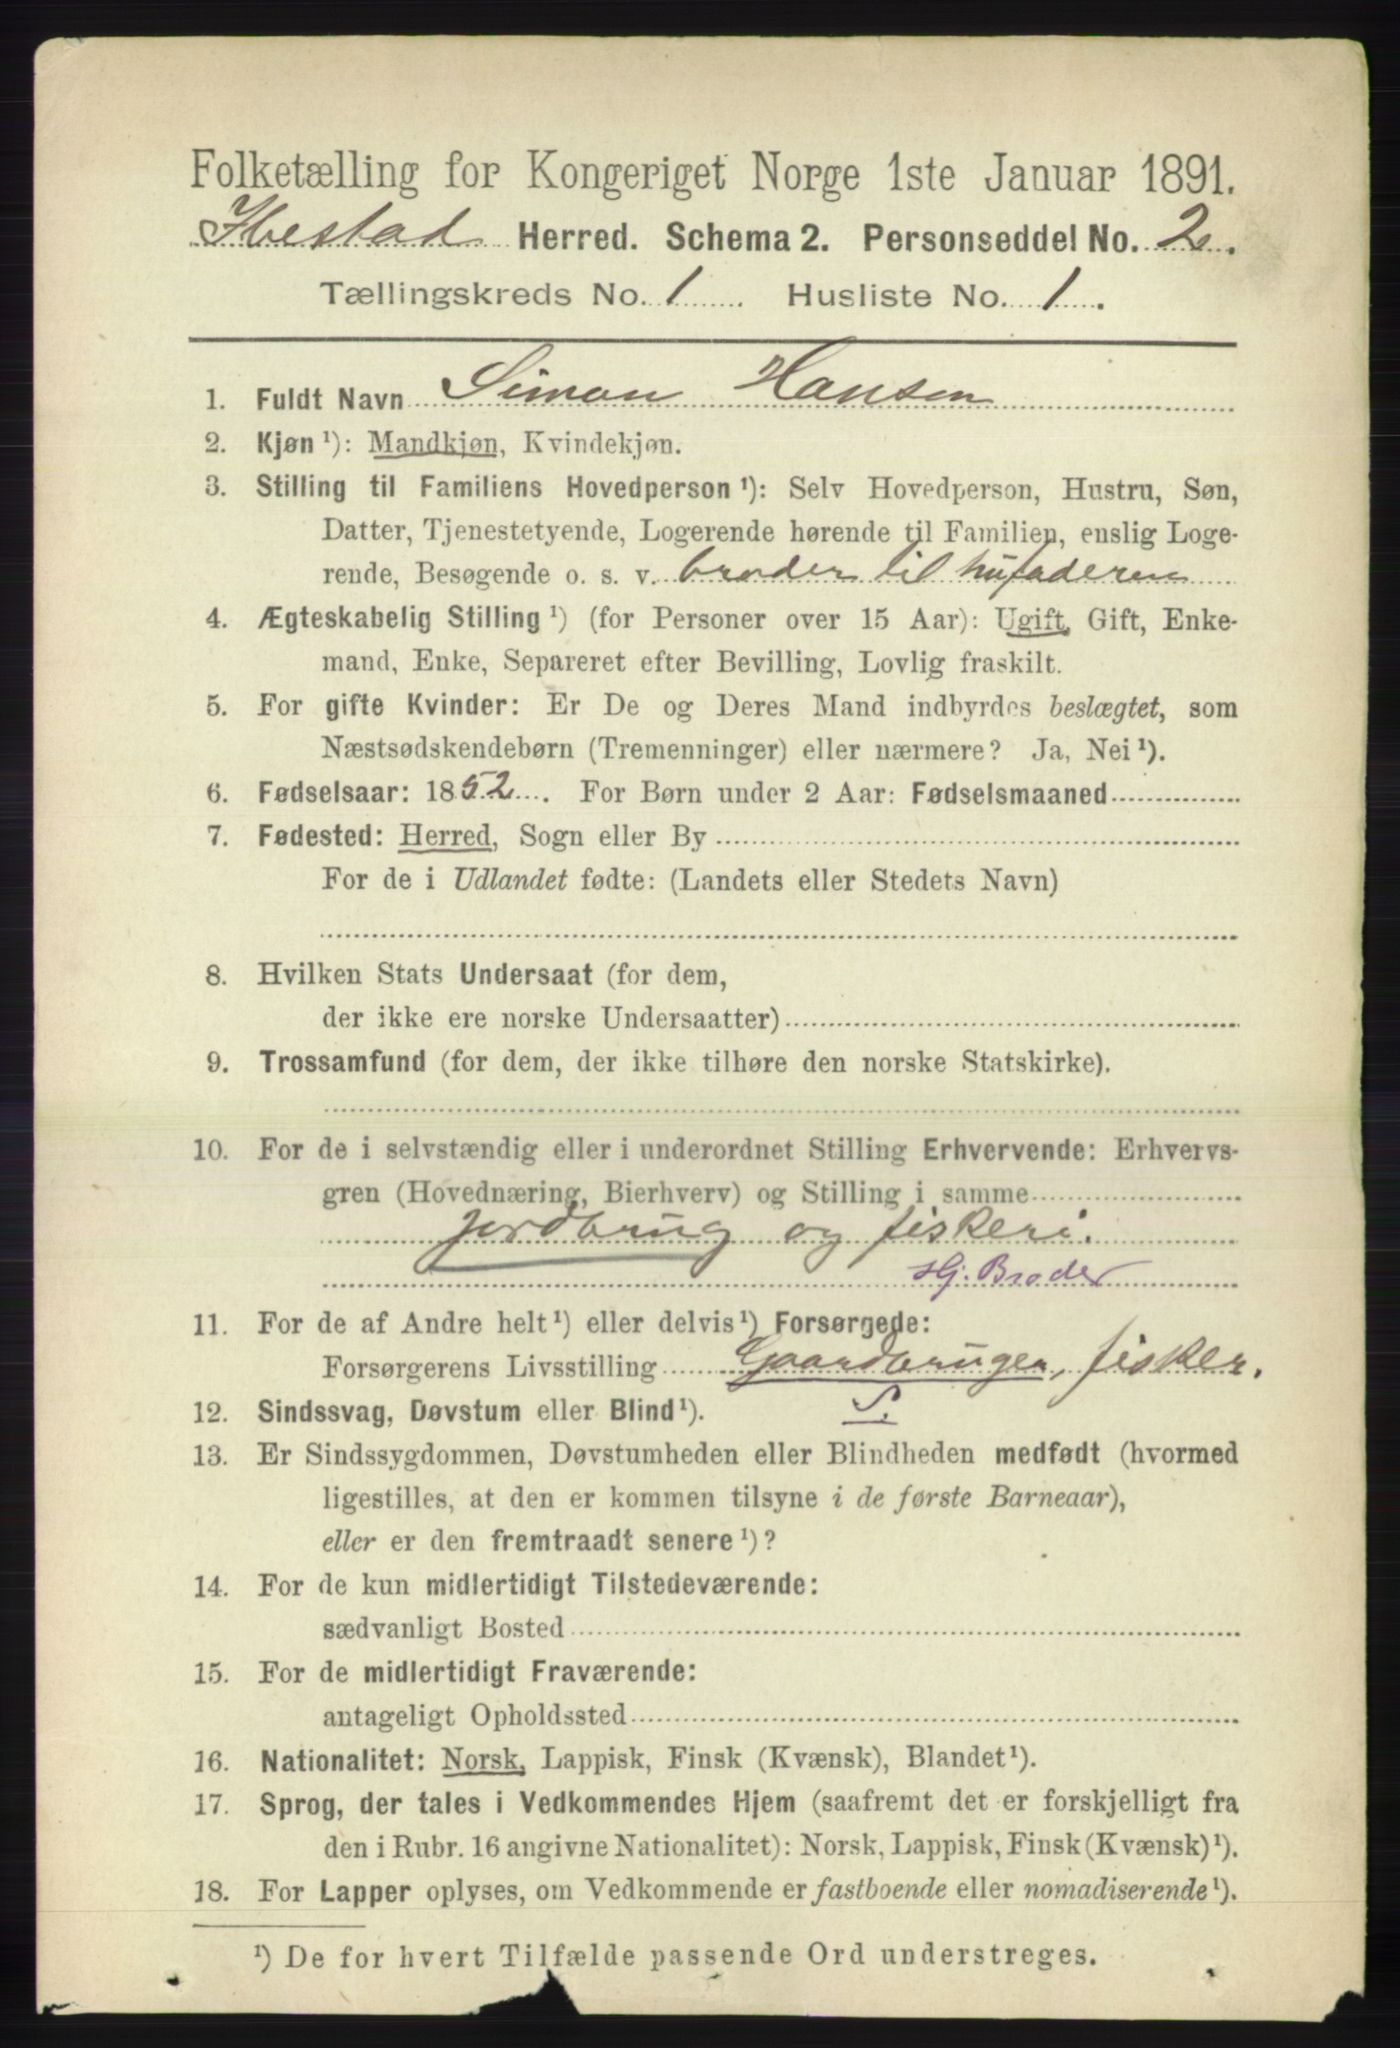 Folketælling for Kongeriget Norge 1ste Januar 1891.
Ibestad Herred. Schema 2. Personseddel No. 2.
Tællingskreds No. 1 Husliste No. 1.
1. Fuldt Navn Simon Hansen
2. Kjøn ¹): Mandkjøn, Kvindekjøn.
3. Stilling til Familiens Hovedperson ¹): Selv Hovedperson, Hustru, Søn,
Datter, Tjenestetyende, Logerende hørende til Familien, enslig Loge-
rende, Besøgende o. s. v. broder til husfaderen
4. Ægteskabelig Stilling ¹) (for Personer over 15 Aar): Ugift, Gift, Enke-
mand, Enke, Separeret efter Bevilling, Lovlig fraskilt.
5. For gifte Kvinder: Er De og Deres Mand indbyrdes beslægtet, som
Næstsødskendebørn (Tremenninger) eller nærmere? Ja, Nei ¹).
6. Fødselsaar: 1852. For Børn under 2 Aar: Fødselsmaaned
7. Fødested: Herred, Sogn eller By
For de i Udlandet fødte: (Landets eller Stedets Navn)
8. Hvilken Stats Undersaat (for dem,
der ikke ere norske Undersaatter)
9. Trossamfund (for dem, der ikke tilhøre den norske Statskirke).
10. For de i selvstændig eller i underordnet Stilling Erhvervende: Erhvervs-
gren (Hovednæring, Bierhverv) og Stilling i samme
jordbrug og fiskeri.
Hj. Broder
11. For de af Andre helt ¹) eller delvis ¹) Forsørgede:
Forsørgerens Livsstilling Gaardbruger, fisker.
12. Sindssvag, Døvstum eller Blind ¹). S.
13. Er Sindssygdommen, Døvstumheden eller Blindheden medfødt (hvormed
ligestilles, at den er kommen tilsyne i de første Barneaar),
eller er den fremtraadt senere ¹)?
14. For de kun midlertidigt Tilstedeværende:
sædvanligt Bosted
15. For de midlertidigt Fraværende:
antageligt Opholdssted
16. Nationalitet: Norsk, Lappisk, Finsk (Kvænsk), Blandet ¹).
17. Sprog, der tales i Vedkommendes Hjem (saafremt det er forskjelligt fra
den i Rubr. 16 angivne Nationalitet): Norsk, Lappisk, Finsk (Kvænsk) ¹).
18. For Lapper oplyses, om Vedkommende er fastboende eller nomadiserende ¹).
¹) De for hvert Tilfælde passende Ord understreges.